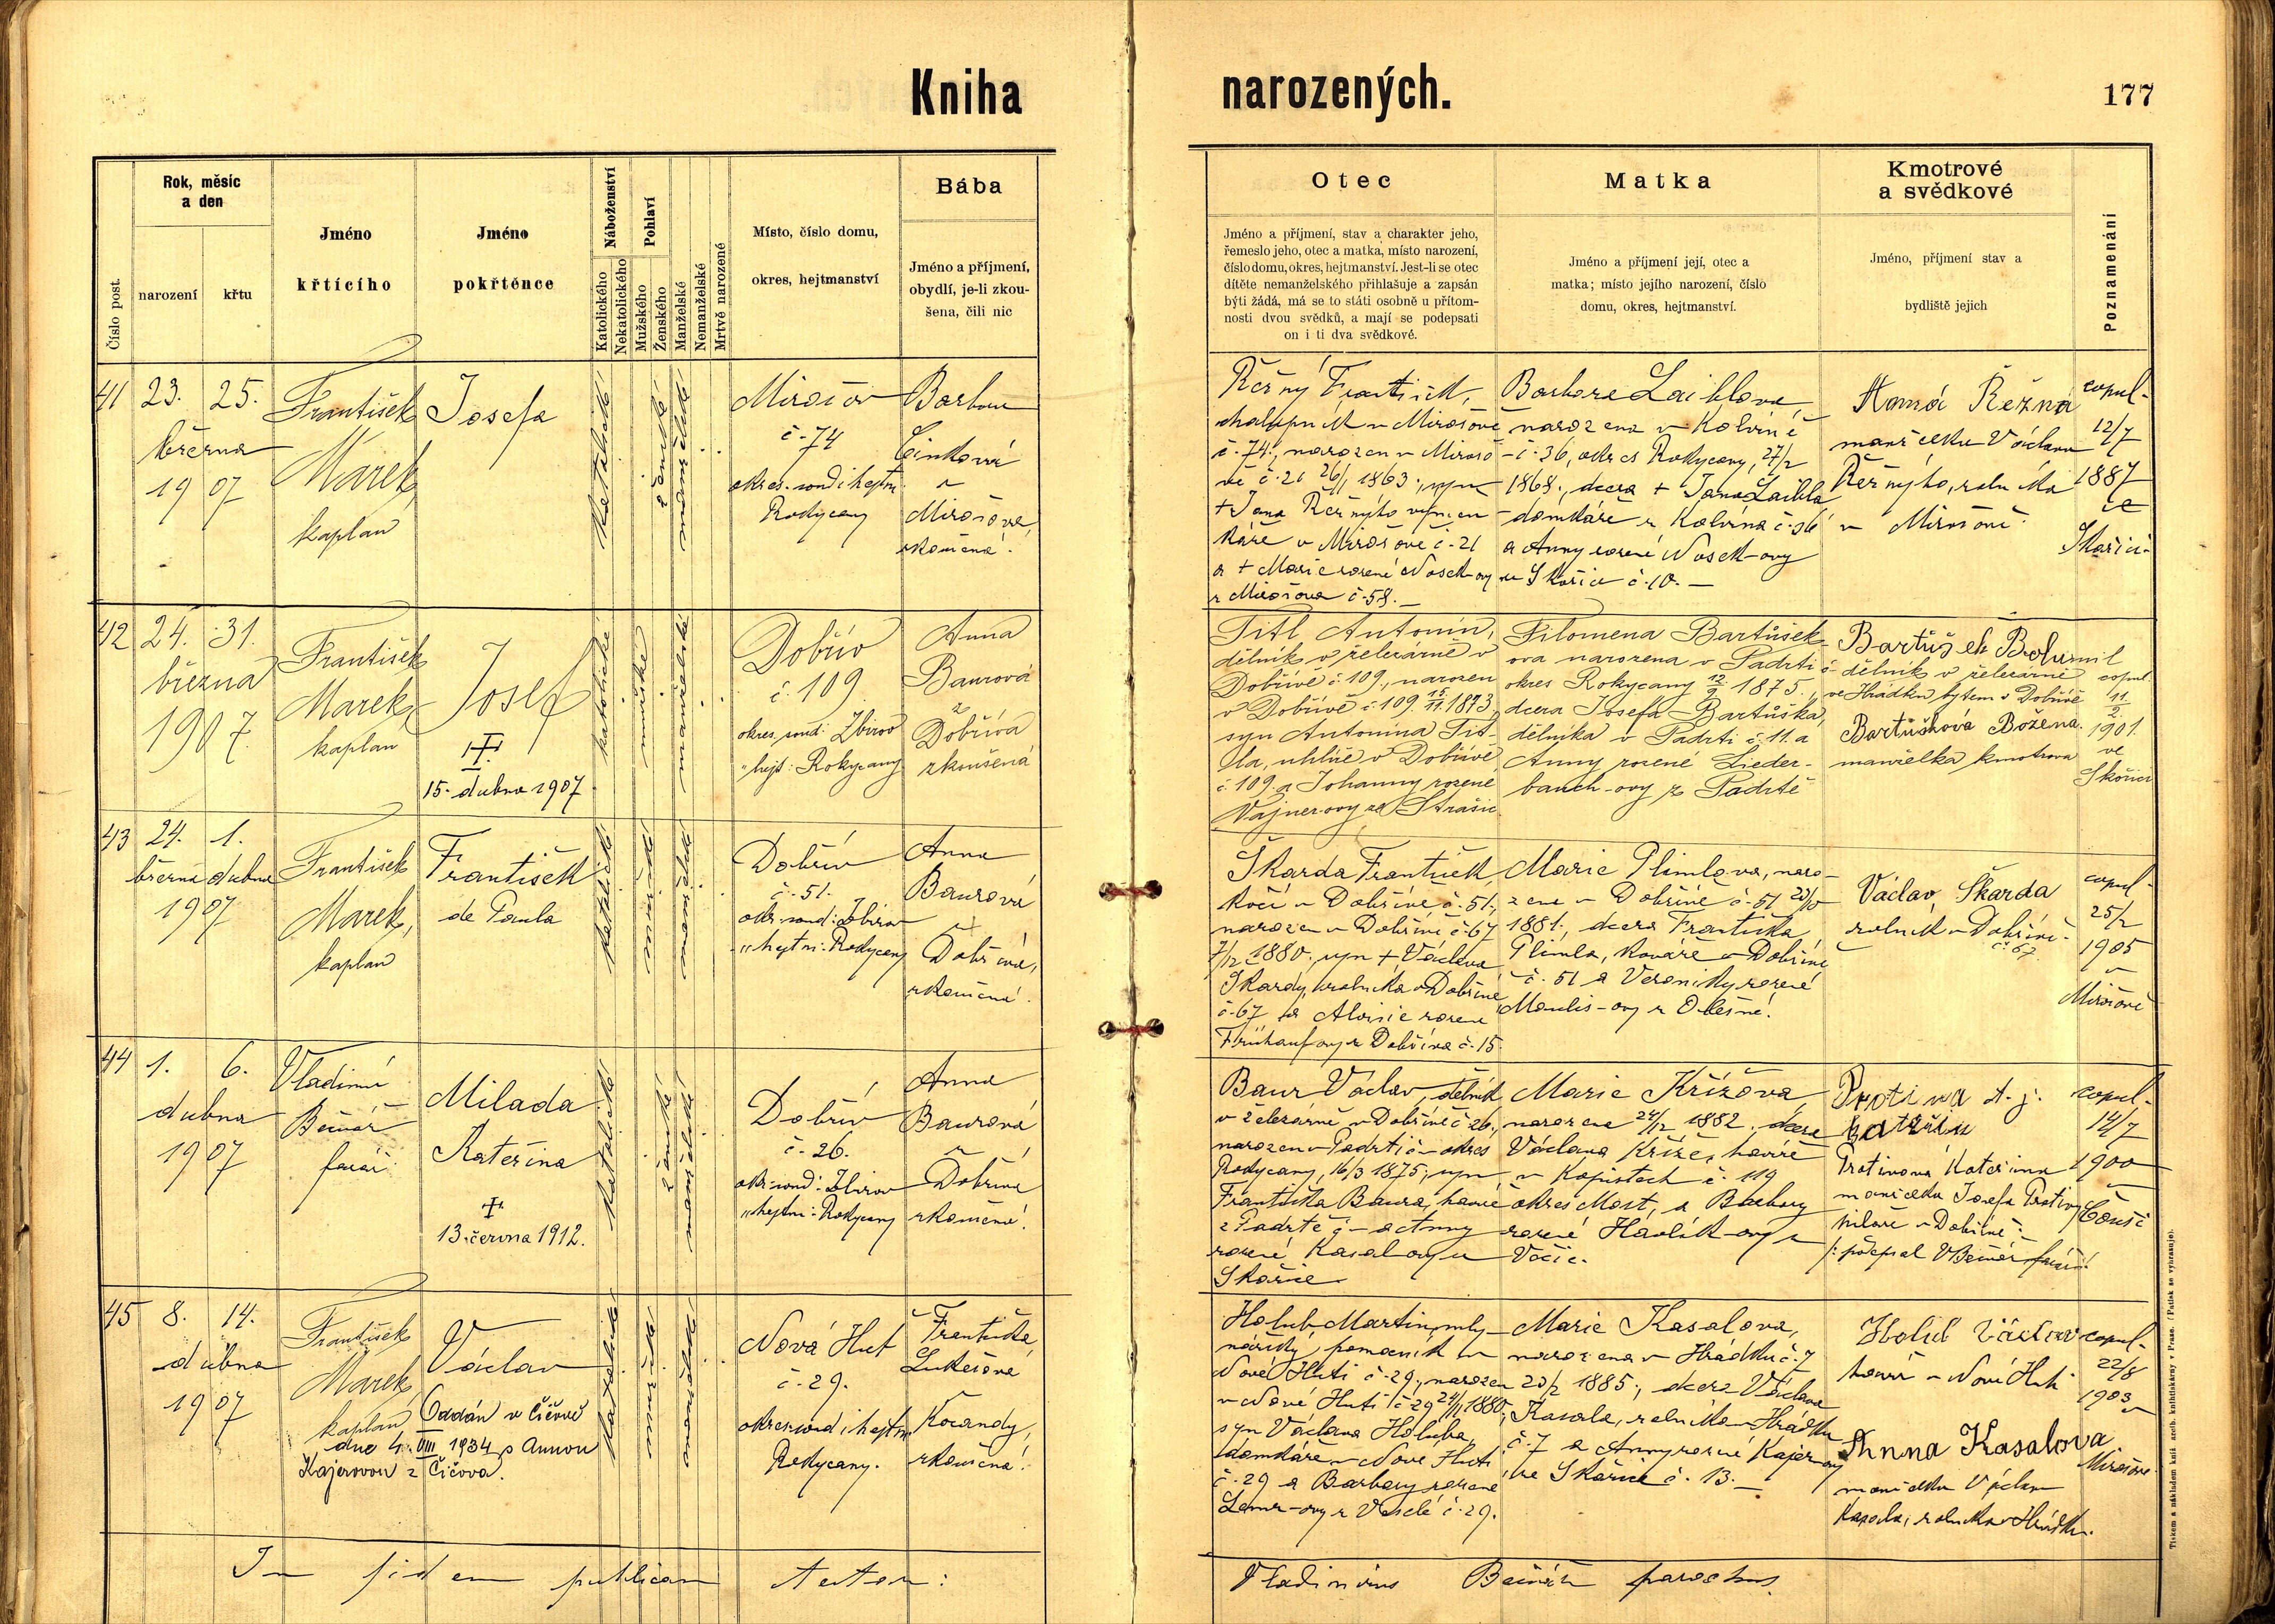 Kniha
narozených.
177
Číslo post.
Rok, měsíc
a den
narození
křtu
Jméno
křtícího
Jméno
pokřtěnce
Náboženství
Katolického
Nekatolického
Pohlaví
Mužského
Ženského
Manželské
Nemanželské
Mrtvě narozené
Místo, číslo domu,
okres, hejtmanství
Bába
Jméno a příjmení,
obydlí, je-li zkou-
šena, čili nic
Otec
Jméno a příjmení, stav a charakter jeho,
řemeslo jeho, otec a matka, místo narození,
číslo domu, okres, hejtmanství. Jest-li se otec
dítěte nemanželského přihlašuje a zapsán
býti žádá, má se to státi osobně u přítom-
nosti dvou svědků, a mají se podepsati
on i ti dva svědkové.
Matka
Jméno a příjmení její, otec a
matka; místo jejího narození, číslo
domu, okres, hejtmanství.
Kmotrové
a svědkové
Jméno, příjmení stav a
bydliště jejich
Poznamenání
41
23.
25.
března
1907
František
Marek,
kaplan
Josefa
katolické
ženské
manželské
Mirošov
č. 74
okres. soud i hejtm.
Rokycany
Barbora
Cinková
z
Mirošova,
zkoušená.
Řežný František,
chalupník v Mirošově
č. 74., narozen v Mirošo-
vě č. 21 26/1 1863., syn
+ Jana Řežnýho výměn-
káře v Mirošově č. 21
a + Marie rozené Nosek-ovy
z Mirošova č. 58. —
Barbora Laiblova,
narozena v Kolvíně
č. 36, okres Rokycany, 27/2
1868., dcera + Jana Laibla
domkáře z Kolvína č. 36
a Anny rozené Nosek-ovy
ze Skořice č. 10. —
Řežná
manželka Václava
Řežnýho, rolníka
v Mirošově.
copul.
12/7
1887
ve
Skořici.
42
24.
31.
března
1907.
František
Marek
kaplan
Josef
15. dubna 1907
katolické
mužské
manželské
Dobřív
č. 109
okres. soud: Zbirov
„ hejt: Rokycany
Anna
Baurová
z
Dobříva
zkoušená
Titl Antonín,
dělník v železárně v
Dobřívě č 109., narozen
v Dobřívě č 109. 15/11. 1873.
syn Antonína Tit-
la, uhlíře v Dobřívě
č. 109. a Johanny rozené
Vajner-ovy ze Strašic
Filomena Bartůšek-
ova narozena v Padrti č
okres Rokycany 12/9 1875.,
dcera Josefa Bartůška,
dělníka v Padrti č. 11. a
Anny rozené Lieder-
bauch-ovy z Padrtě
Bartůšek Bohumil
dělník v železárně
ve Hrádku bytem v Dobřívě
Bartůšková Božena.
manželka kmotrova
copul.
11/2.
1901.
ve
Skořici
43
24.
1.
března
dubna
1907
František
Marek,
kaplan
František
de Paula
katolické
mužské
manželské
Dobřív
č. 51.
okr. soud: Zbirov
„ hejtm: Rokycany
Anna
Baurová
z
Dobříva,
zkoušená.
Škarda František,
kočí v Dobřívě č. 51.,
narozen v Dobřívě č. 67
7/12 1880., syn + Václava
Škardy, rolníka v Dobřívě
č. 67 a Aloisie rozené
Frühauf-ovy z Dobříva č. 15.
Marie Plimlova, naro-
zena v Dobřívě č. 51
1881., dcera Františka
Plimla, kováře v Dobřívě
č. 51 a Veroniky rozené
Moulis-ovy z Olešné.
Václav Škarda
rolník v Dobřívě.
č. 67
copul.
25/2
1905
v
Mirošově
44
1.
6.
dubna
1907
Vladimír
farář.
Milada
Kateřina
13. června 1912.
katolické
ženské
manželské
Dobřív
č. 26.
okr. soud: Zbirov
„ hejtm: Rokycany
Anna
Baurová
z
Dobříva
zkoušená.
Baur Václav, dělník
v železárně v Dobřívě č. 26.,
narozen v Padrti č – okres
Rokycany, 16/3 1875., syn
Františka Baura, havíře
z Padrtě č – a Anny
rozené Kasal-ovy ze
Skořice
Marie Křížova,
narozena 24/12 1882., dcera
Václava Kříže, havíře
v Kopistech č. 119
okres Most, a Barbory
rozené Havlík-ovy z
Protiva
Protivová Kateřina
manželka Josefa Protivy
v Dobřívě.
/: podepsal
farář :/
copul.
14/7
1900
v
45
8.
14.
dubna
1907
František
Marek,
kaplan
Václav
Oddán v Čičově
dne 4. VIII 1934 s Annou
Kajerovou z Čičova.
katolické
mužské
manželské
Nová Huť
č. 29.
okres. soud i hejtm.
Rokycany.
Františka
Lukešova
z
Kocandy,
zkoušená.
Holub Martin, mly-
nářský pomocník v
Nové Huti č. 29., narozen
v Nové Huti č. 29 1880,
syn Václava Holuba,
domkáře v Nové Huti
č. 29 a Barbory rozené
z Veselé č. 29.
Marie Kasalova,
narozena v Hrádku č. 7
1885., dcera Václava
Kasala, rolníka v Hrádku
č. 7 a Anny rozené Kajer-ovy
ze Skořice č. 13. —
Holub Václav
havíř v Nové Huti
Anna Kasalova
manželka Václava
Kasala, rolníka v Hrádku.
copul.
22/8
1903
v
Mirošově.
In fidem publicam testor:
Vladimirus parochus.
Tiskem a nákladem knih. arcib. knihtiskárny v Praze. (Patisk se vyhrazuje).